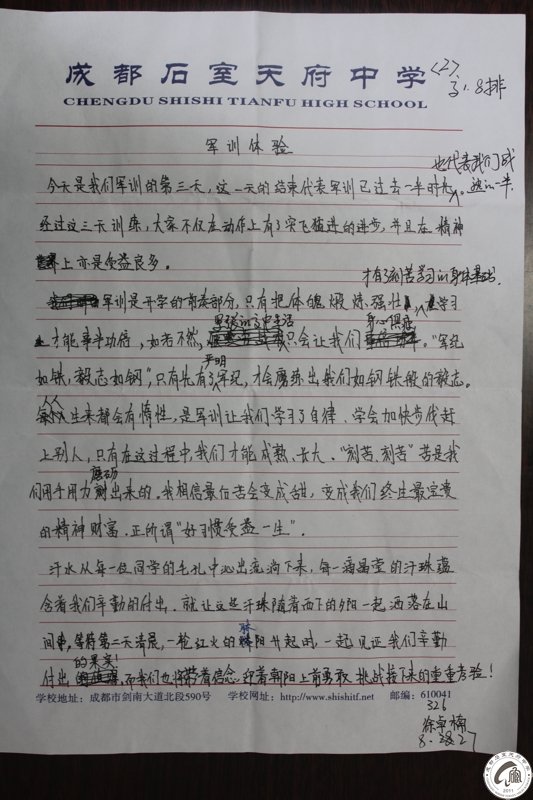 成都石室天府中学
CHENGDU SHISHI TIANFU HIGH SCHOOL
<2>
高1.8排
军训体验
也代表我们成
今天是我们军训的第三天，这一天的结束代表军训已过去一半时光，
经过这三天训练，大家不仅在动作上有了突飞猛进的进步，并且在精神
上亦是受益良多。
才有了刻苦学习的身体基础
军训是开学的前奏部分，只有把体魄煅炼强壮，学习
紧张的高中生活 身心俱疲
才能事半功倍，如若不然，只会让我们。“军纪
严明
如铁，毅志如钢”，只有先有了军纪，才会磨练出我们如钢铁般的毅志。
人人生来都会有惰性，是军训让我们学习了自律、学会加快步伐赶
上别人，只有在这过程中，我们才能成熟、长大。“刻苦、刻苦”苦是我
磨砺
们用手用力刻出来的。我相信最后苦会变成甜，变成我们终生最宝贵
的精神财富。正所谓“好习惯受益一生”。
汗水从每一位同学的毛孔中沁出流淌下来，每一滴晶莹的汗珠蕴
含着我们辛勤的付出。就让这些汗珠随着西下的夕阳一起洒落在山
间，等待第二天清晨，一轮红火的阳升起时，一起见证我们辛勤
的果实！
付出，而我们也将带着信念迎着朝阳上前勇敢挑战接下来的重重考验！
学校地址：成都市剑南大道北段590号 学校网址：http://www.shishitf.net 邮编：610041
326
徐卓楠
8.27